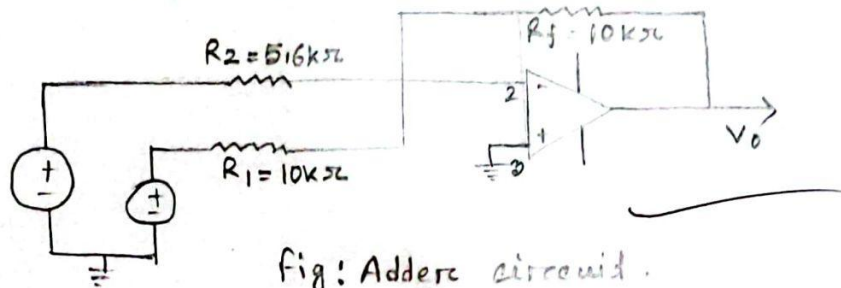 Rf = 10kΩ
R2 = 5.6kΩ
2
-
+
3
V0
R1 = 10kΩ
+
-
+
-
Fig: Adderc circcuid.